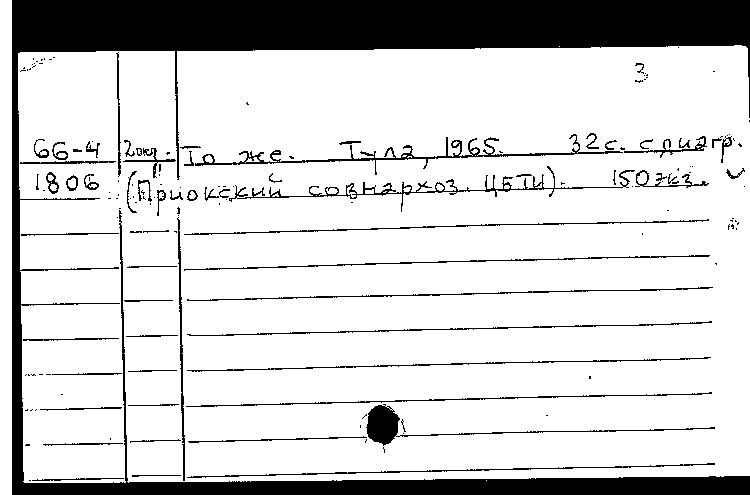 3
66-4 2 экз. То же. Тула, 1965. 32 с. с диагр.
1806 (Приокский совнархоз. ЦБТИ). 150 экз.